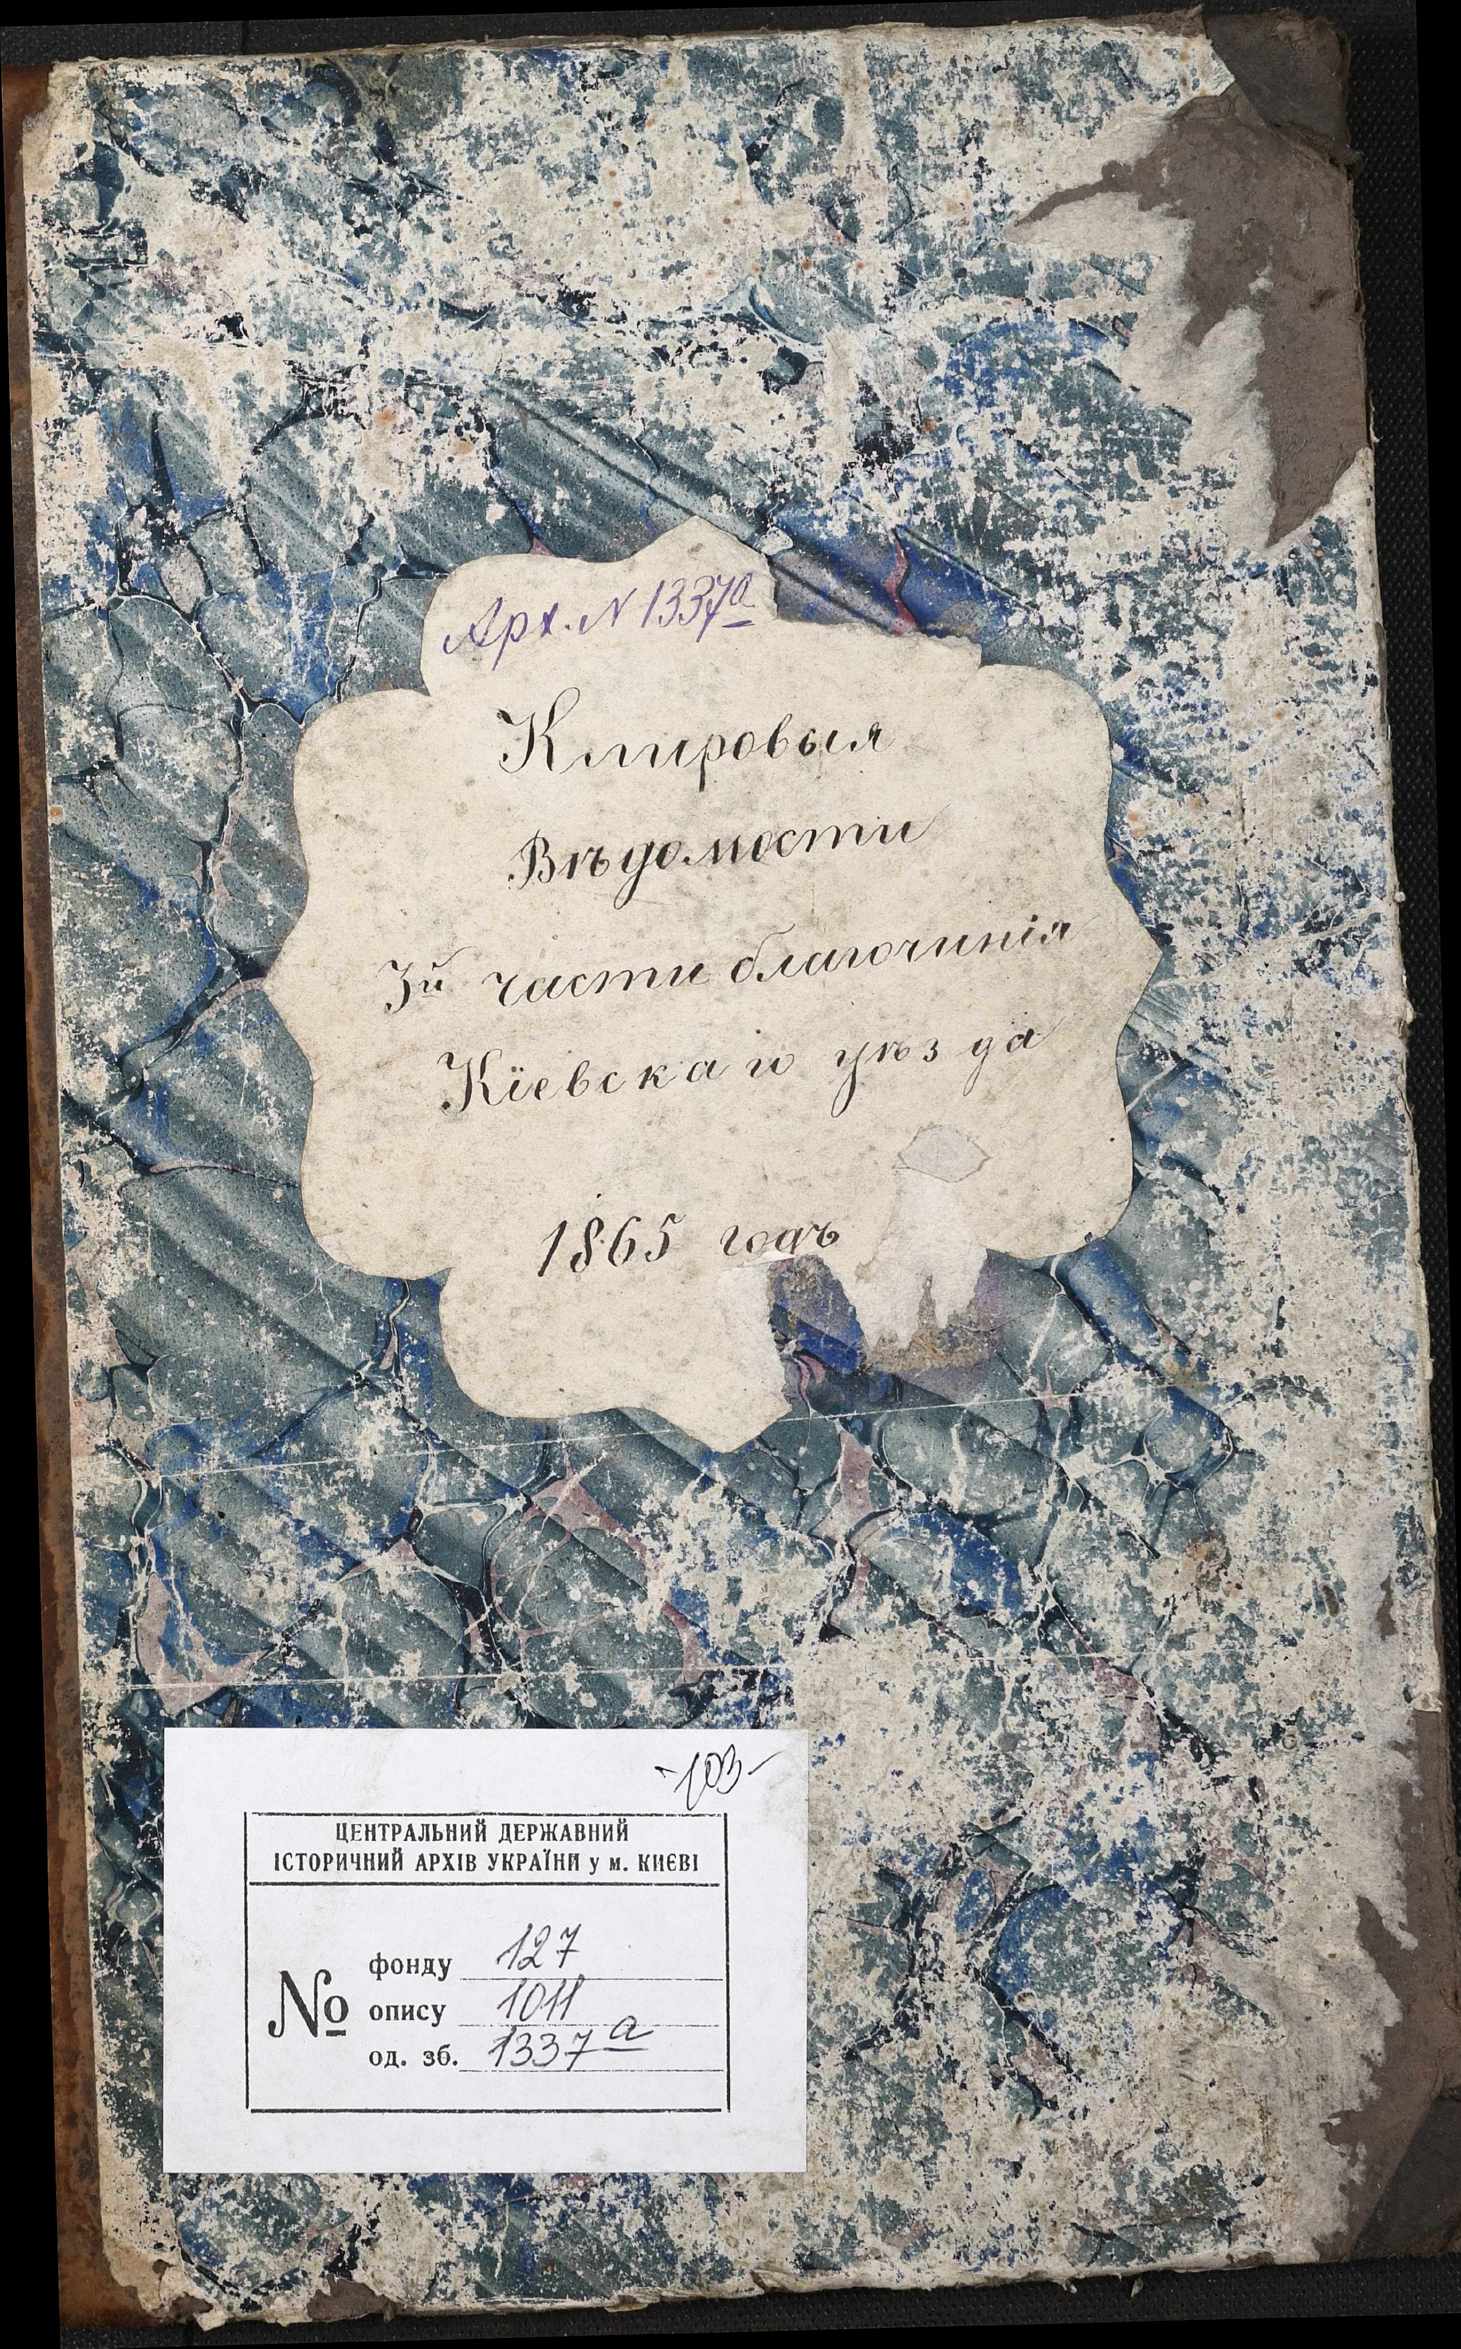 Арх. N 1337а
Клировыя
Вѣдомости
3й части благочинія
Кіевскаго уѣзда
1865 годъ
-103-
ЦЕНТРАЛЬНИЙ ДЕРЖАВНИЙ
ІСТОРИЧНИЙ АРХІВ УКРАЇНИ у м. КИЄВІ
№
фонду 127
опису 1011
од. зб. 1337а